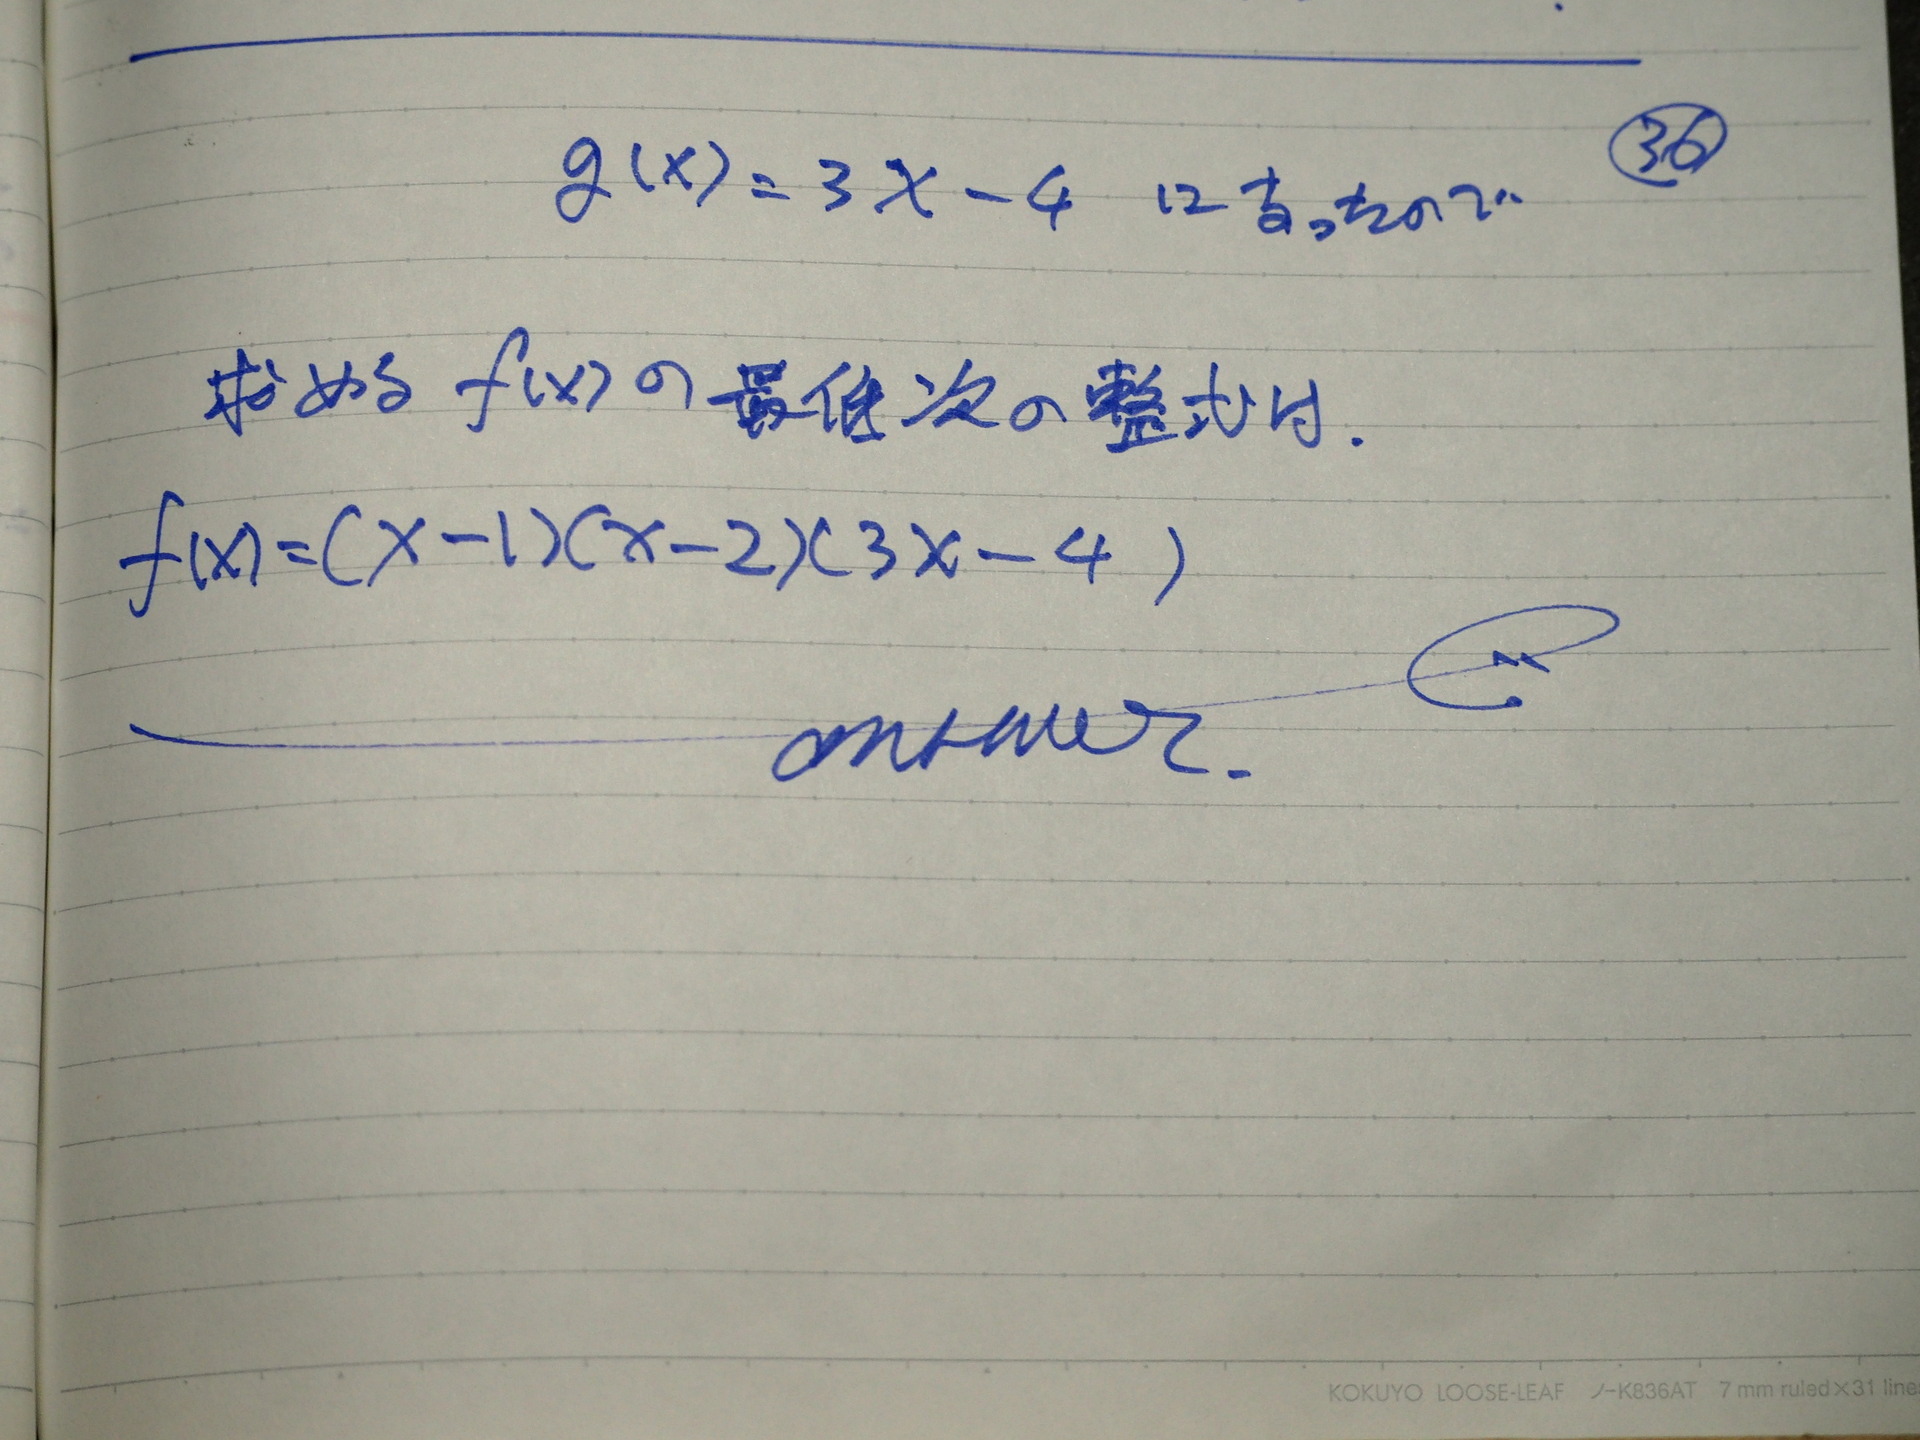 36
g(x)=3x-4 になったので
求める f(x)の最低次の整式は.
f(x)=(x-1)(x-2)(3x-4)
answer.
KOKUYO LOOSE-LEAF ノ-K836AT 7 mm ruled×31 line